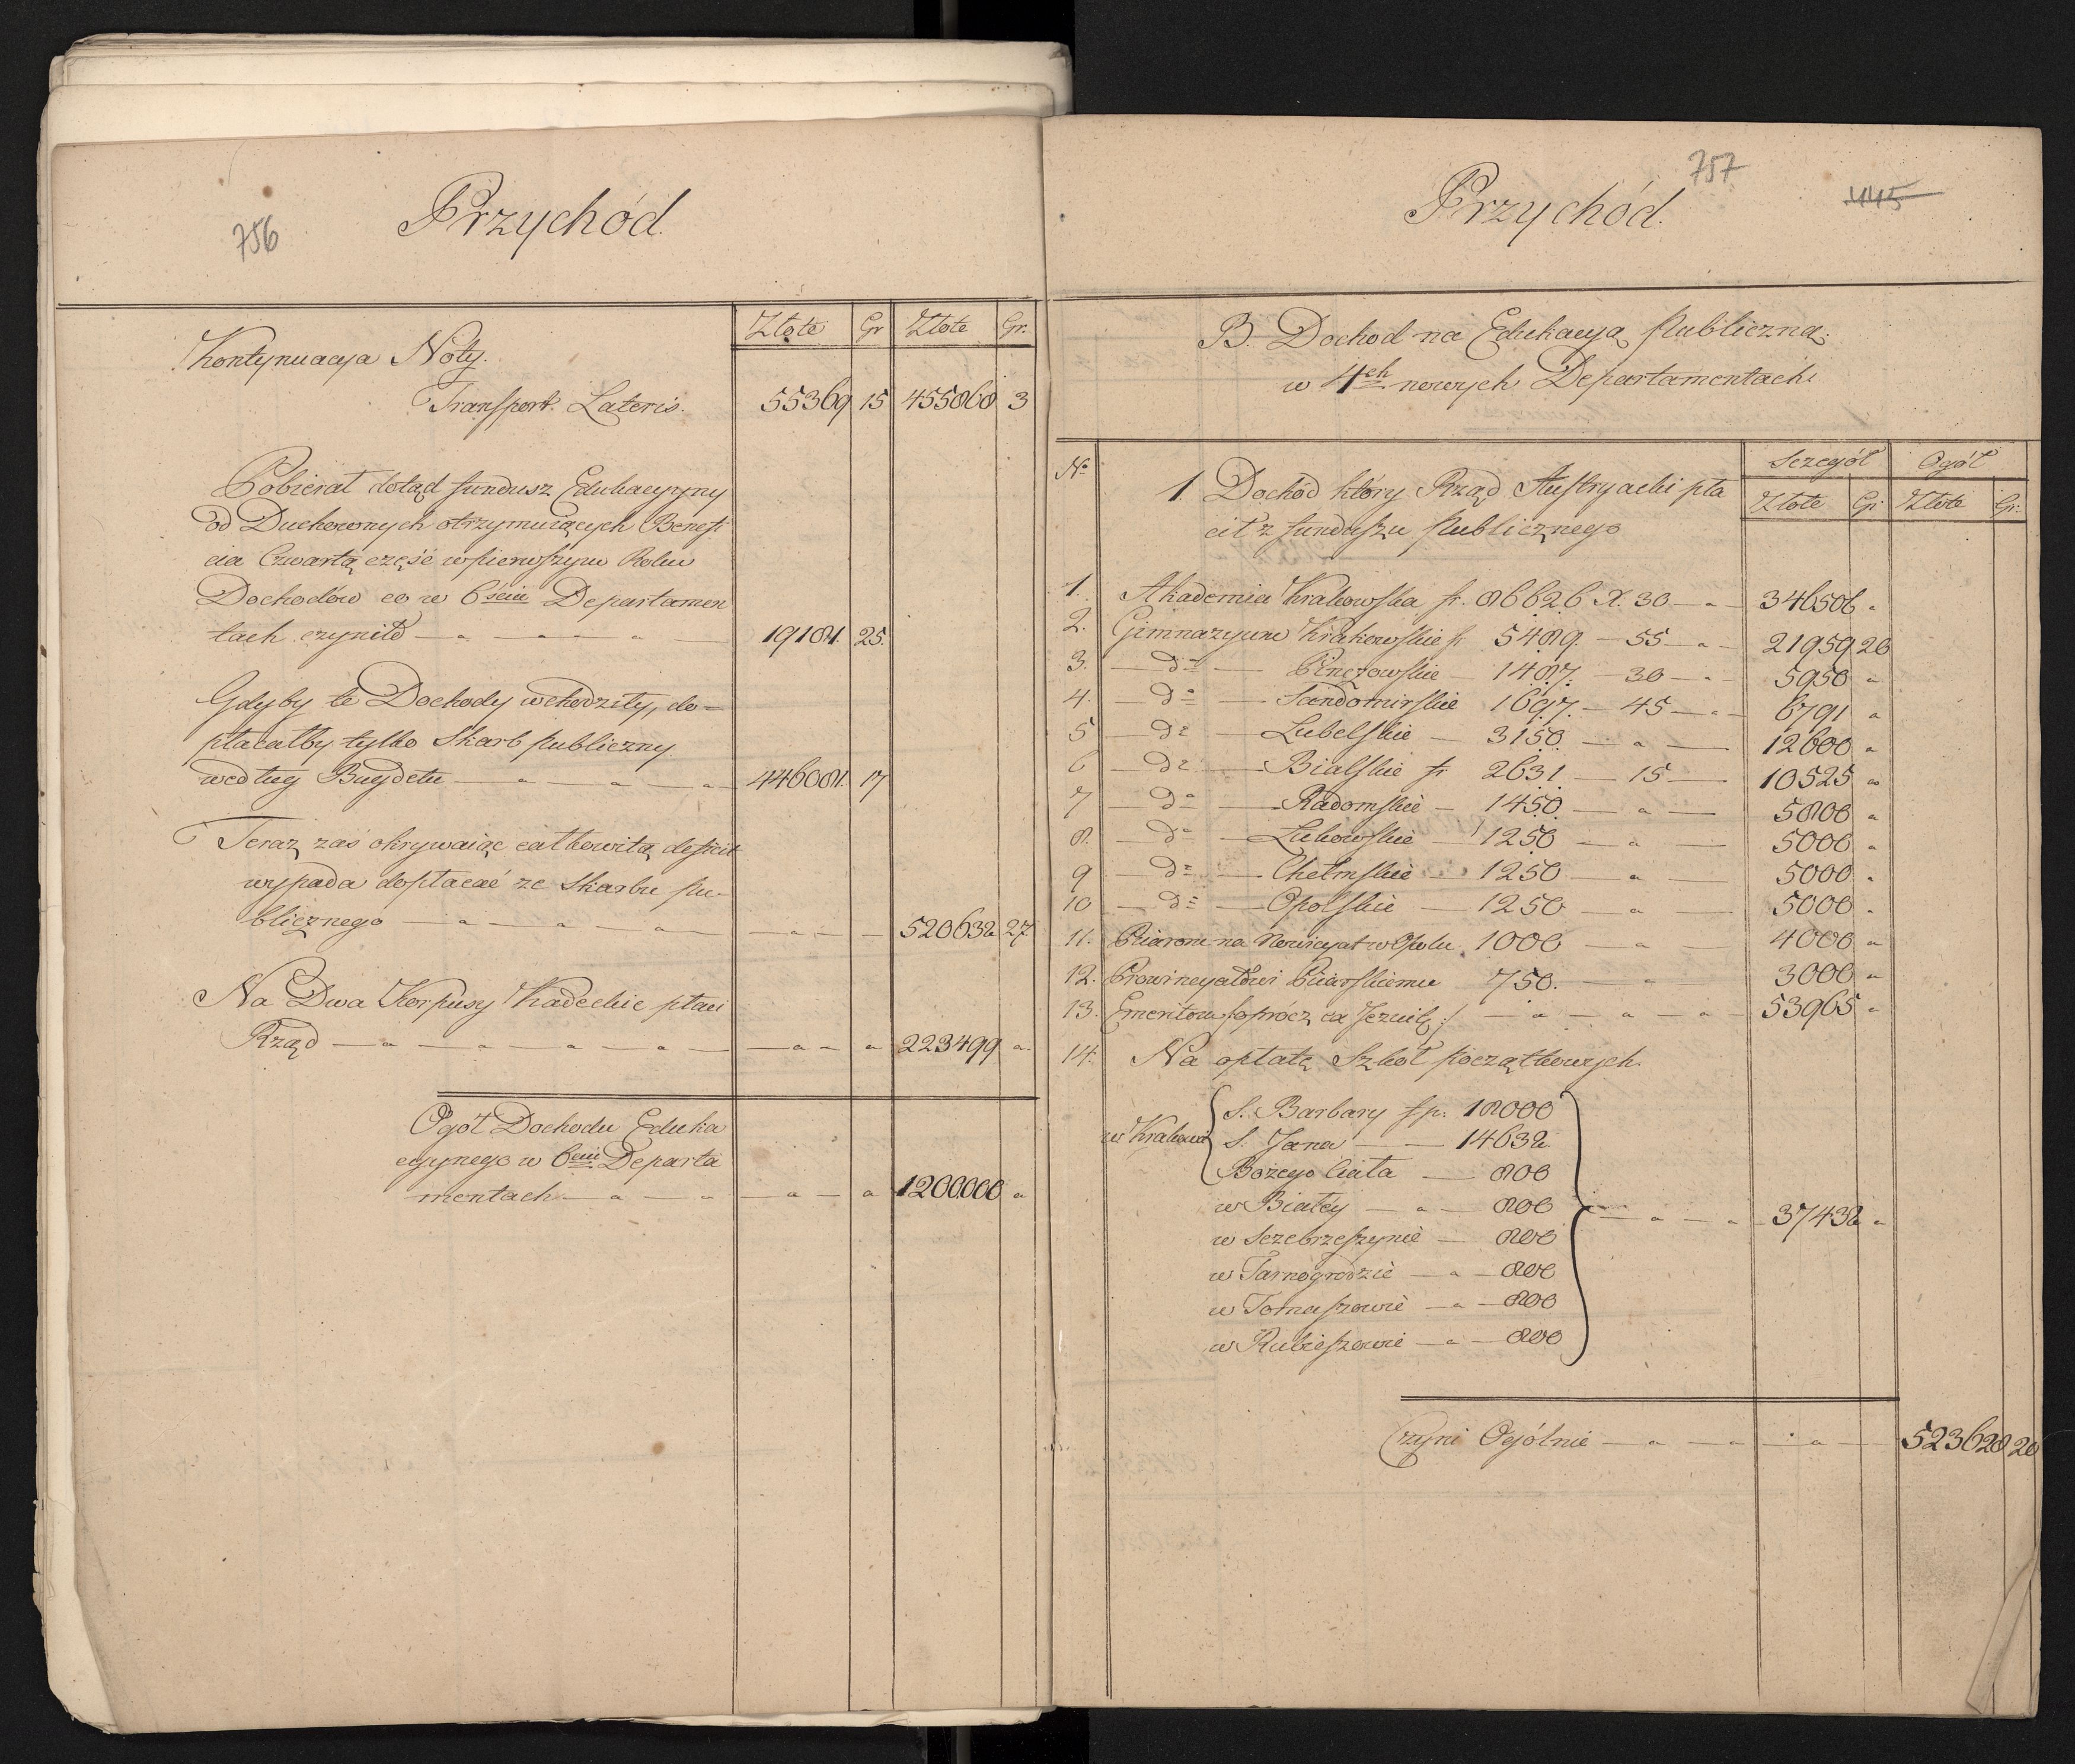 756
Przychód.
Złote Gr Złote Gr.
Kontynuacya Noty.
Transport Lateris. 55369 15 455868 3
Pobierał dotąd fundusz Edukacyyny
od Duchownych otrzymuiących Benefi
cia Czwartą część w pierwszym Roku
Dochodów co w 6ściu Departamen
tach czyniło — " — " — " — 19181. 25.
Gdyby te Dochody wchodziły, do=
płacałby tylko Skarb publiczny
według Buydetu — " — " — " 446081. 17
Teraz zaś okrywaiąc całkowitą deficit
wypada dopłacać ze Skarbu Pu-
blicznego — " — " — " — " — 520632 27.
Na Dwa Korpusy Kadeckie płaci
Rząd — " — " — " — " — " — " 223499 "
Ogół Dochodu Eduka
cyynego w 6ciu Departa
mentach — " — " — " — " 1200.000 "
757
445
Przychód.
B. Dochod na Edukacyą Publiczną.
w 4ech nowych Departamentach.
No Szczegół Ogół
Złote Gr. Złote Gr.
1. Dochód który Rząd Austryacki pła
cił z funduszu Publicznego
1. Akademia Krakowska fr. 86626 X. 30 — " — 346506 "
2. Gimnazyum Krakowskie fr 5489. — 55 — " — 21959 20
3. — do — Pinczowskie — 1487. — 30 — " — 5950 "
4. — do — Sandomirskie 1697. — 45 — " — 6791 "
5 — do — Lubelskie — 3150. — " — 12600 "
6 — do — Bialskie fr 2631 — 15 — 10525 "
7 — do — Radomskie — 1450. — " — 5800 "
8. — do — Łukowskie — 1250 — " — 5000 "
9 — do — Chełmskie — 1250 — " — 5000 "
10 — do — Opolskie — 1250 — " — 5000 "
11. Piiarom na Nowicyat w Opolu 1000 — " — 4000 "
12. Prowincyałowi Piiarskiemu 750. — " — 3000 "
13. Emeritom /:oprócz ex Jezuit:/ — " — " — " — 53965 "
14. Na opłatę Szkół początkowych.
w Krakowie
S. Barbary fp. 18000
S. Jana — 14632
Bożego Ciała — 800
w Białéy — " — 800
w Szczebrzeszynie — 800
w Tarnogrodzie — " — 800
w Tomaszowie — " — 800
w Rubieszowie — " — 800
— " — " — " 37432 "
Czyni Ogólnie — " — " — " — 523628 20